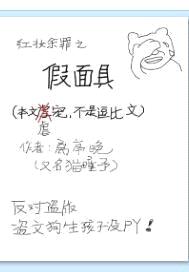 红妆余罪之
假面具
(本文完,不是逗比文)
虐
作者:亭晚
(又名猫子)
反对盗版
盗文狗生孩子没PY!